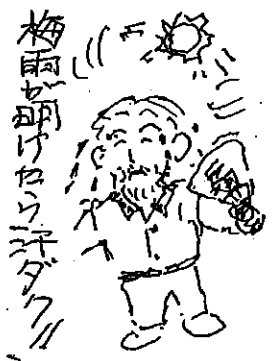 梅雨が明けたら汗ダク!!